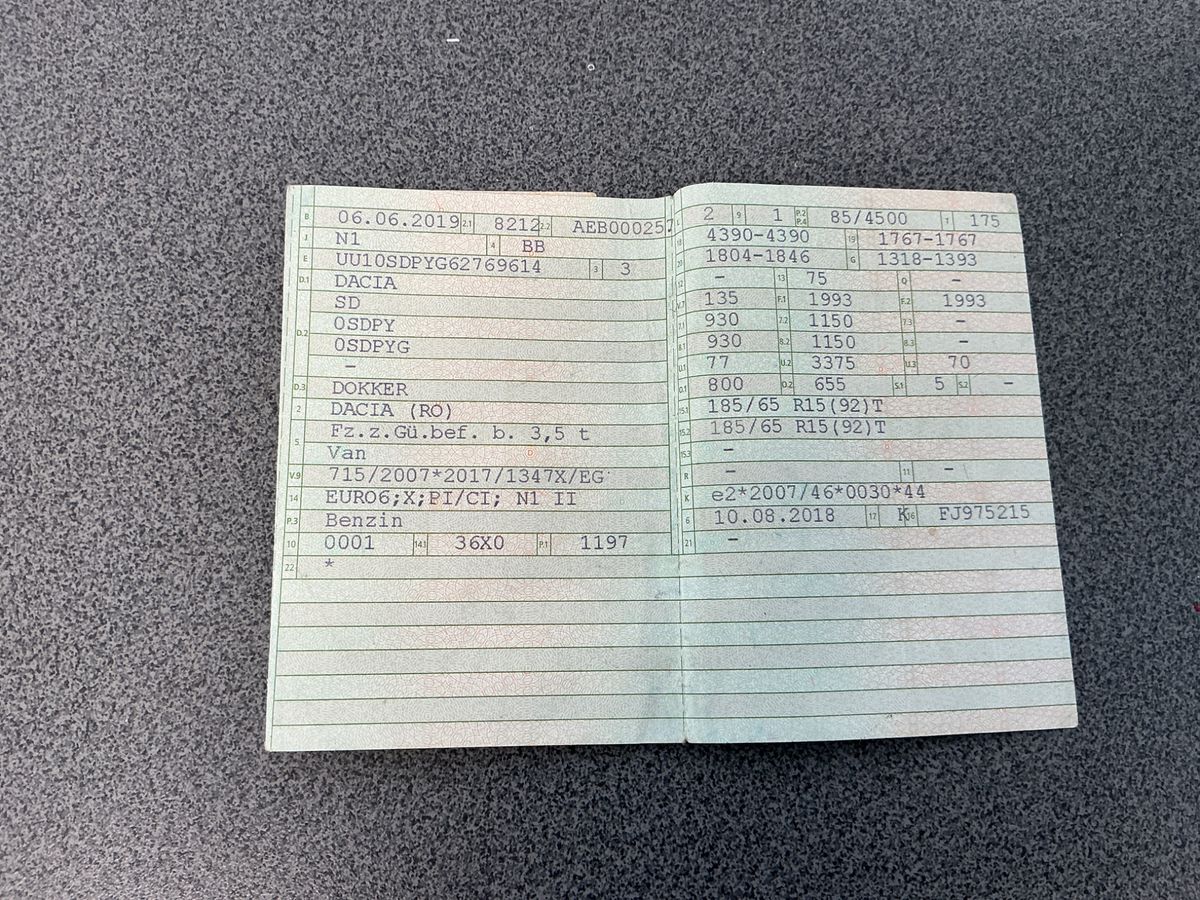 B 06.06.2019 2.1 8212 2.2 AEB000257
J N1 4 BB
E UU10SDPYG62769614 3 3
D.1 DACIA
SD
D.2 0SDPY
0SDPYG
-
D.3 DOKKER
2 DACIA (RO)
5 Fz.z.Gü.bef. b. 3,5 t
Van
V.9 715/2007*2017/1347X/EG
14 EURO6;X;PI/CI; N1 II
P.3 Benzin
10 0001 14.1 36X0 P.1 1197
22 *
L 2 9 1 P.2 P.4 85/4500 T 175
18 4390-4390 19 1767-1767
20 1804-1846 G 1318-1393
12 - 13 75 Q -
V.7 135 F.1 1993 F.2 1993
7.1 930 7.2 1150 7.3 -
8.1 930 8.2 1150 8.3 -
U.1 77 U.2 3375 U.3 70
O.1 800 O.2 655 S.1 5 S.2 -
15.1 185/65 R15(92)T
15.2 185/65 R15(92)T
15.3 -
R - 11 -
K e2*2007/46*0030*44
6 10.08.2018 17 K 16 FJ975215
21 -